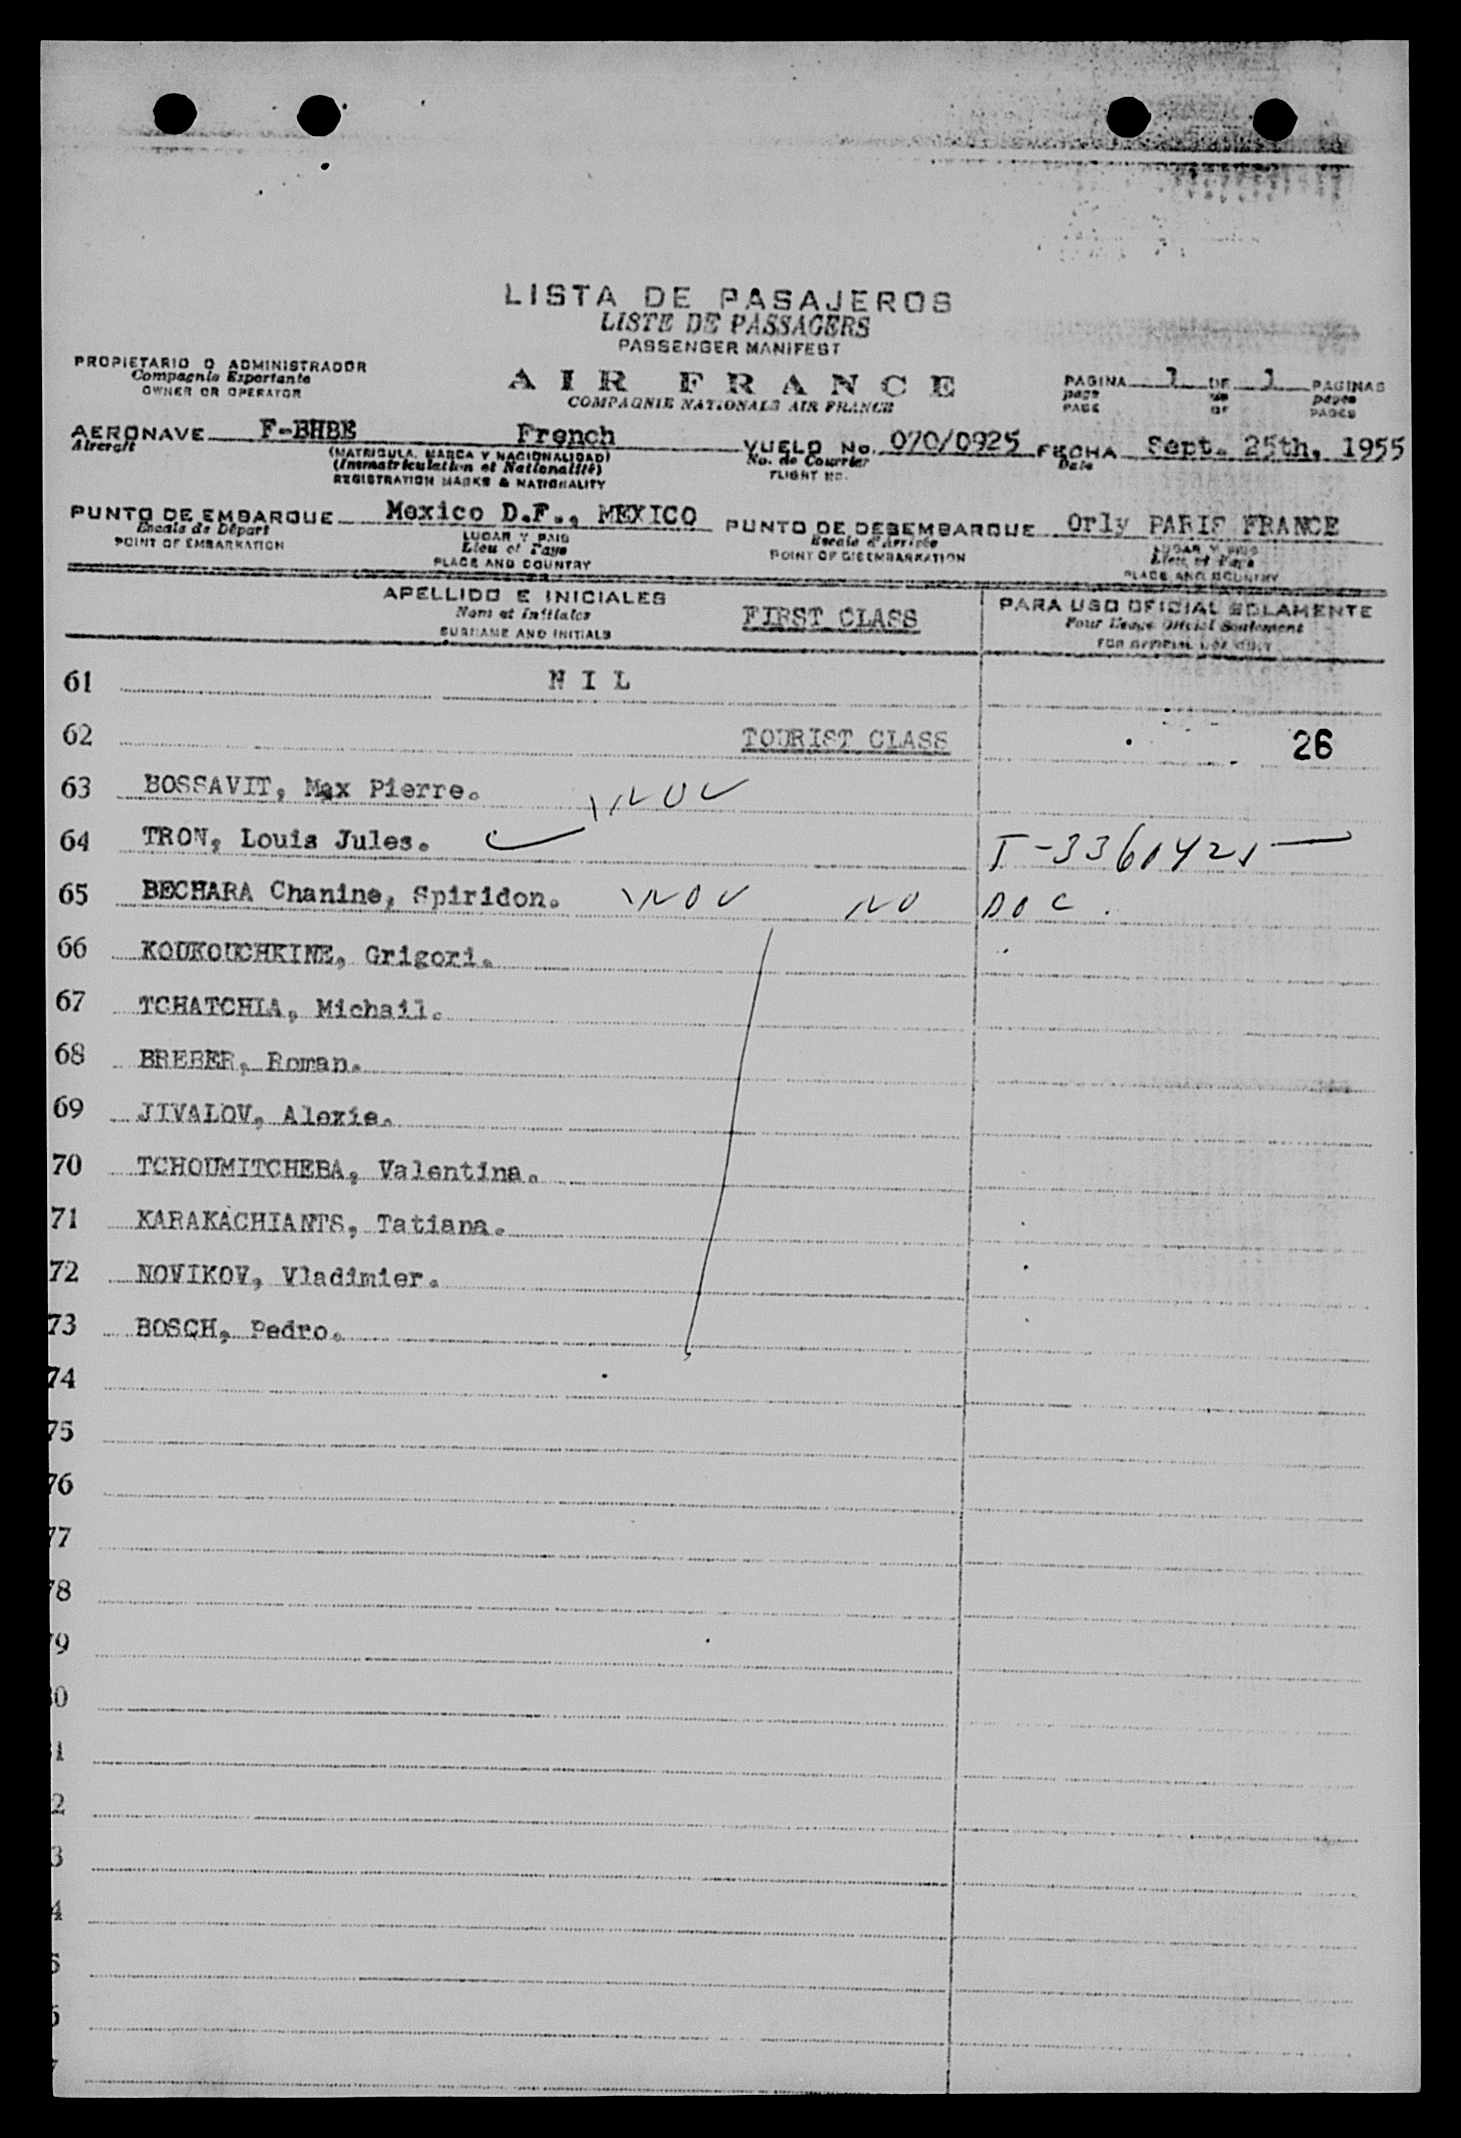 LISTA DE PASAJEROS
LISTE DE PASSAGERS
PASSENGER MANIFEST
PROPIETARIO O ADMINISTRADOR
Compagnie Exportante
OWNER OR OPERATOR
AIR FRANCE
COMPAGNIE NATIONALE AIR FRANCE
PAGINA 1 DE 1 PAGINAS
page de pages
PAGE OF PAGES
AERONAVE F-BHBE French VUELO No. 070/0925 FECHA Sept. 25th, 1955
Aircraft (MATRICULA, MARCA Y NACIONALIDAD) No. de Courrier Date
(Immatriculation et Nationalité) FLIGHT NO.
REGISTRATION MARKS & NATIONALITY
PUNTO DE EMBARQUE Mexico D.F., MEXICO PUNTO DE DESEMBARQUE Orly PARIS FRANCE
Escale de Départ LUGAR Y PAIS Escale d'Arrivée LUGAR Y PAIS
POINT OF EMBARKATION Lieu et Pays POINT OF DISEMBARKATION Lieu et Pays
PLACE AND COUNTRY PLACE AND COUNTRY
APELLIDO E INICIALES FIRST CLASS PARA USO OFICIAL SOLAMENTE
Nom et Initiales Pour Usage Officiel Seulement
SURNAME AND INITIALS FOR OFFICIAL USE ONLY
61 N I L
62 TOURIST CLASS 26
63 BOSSAVIT, Max Pierre.
64 TRON, Louis Jules. T-3361421
65 BECHARA Chanine, Spiridon. NO DOC.
66 KOUKOUCHKINE, Grigori.
67 TCHATCHIA, Michail.
68 BREBER, Roman.
69 JIVALOV, Alexie.
70 TCHOUMITCHEBA, Valentina.
71 KARAKACHIANTS, Tatiana.
72 NOVIKOV, Vladimier.
73 BOSCH, Pedro.
74
75
76
77
78
79